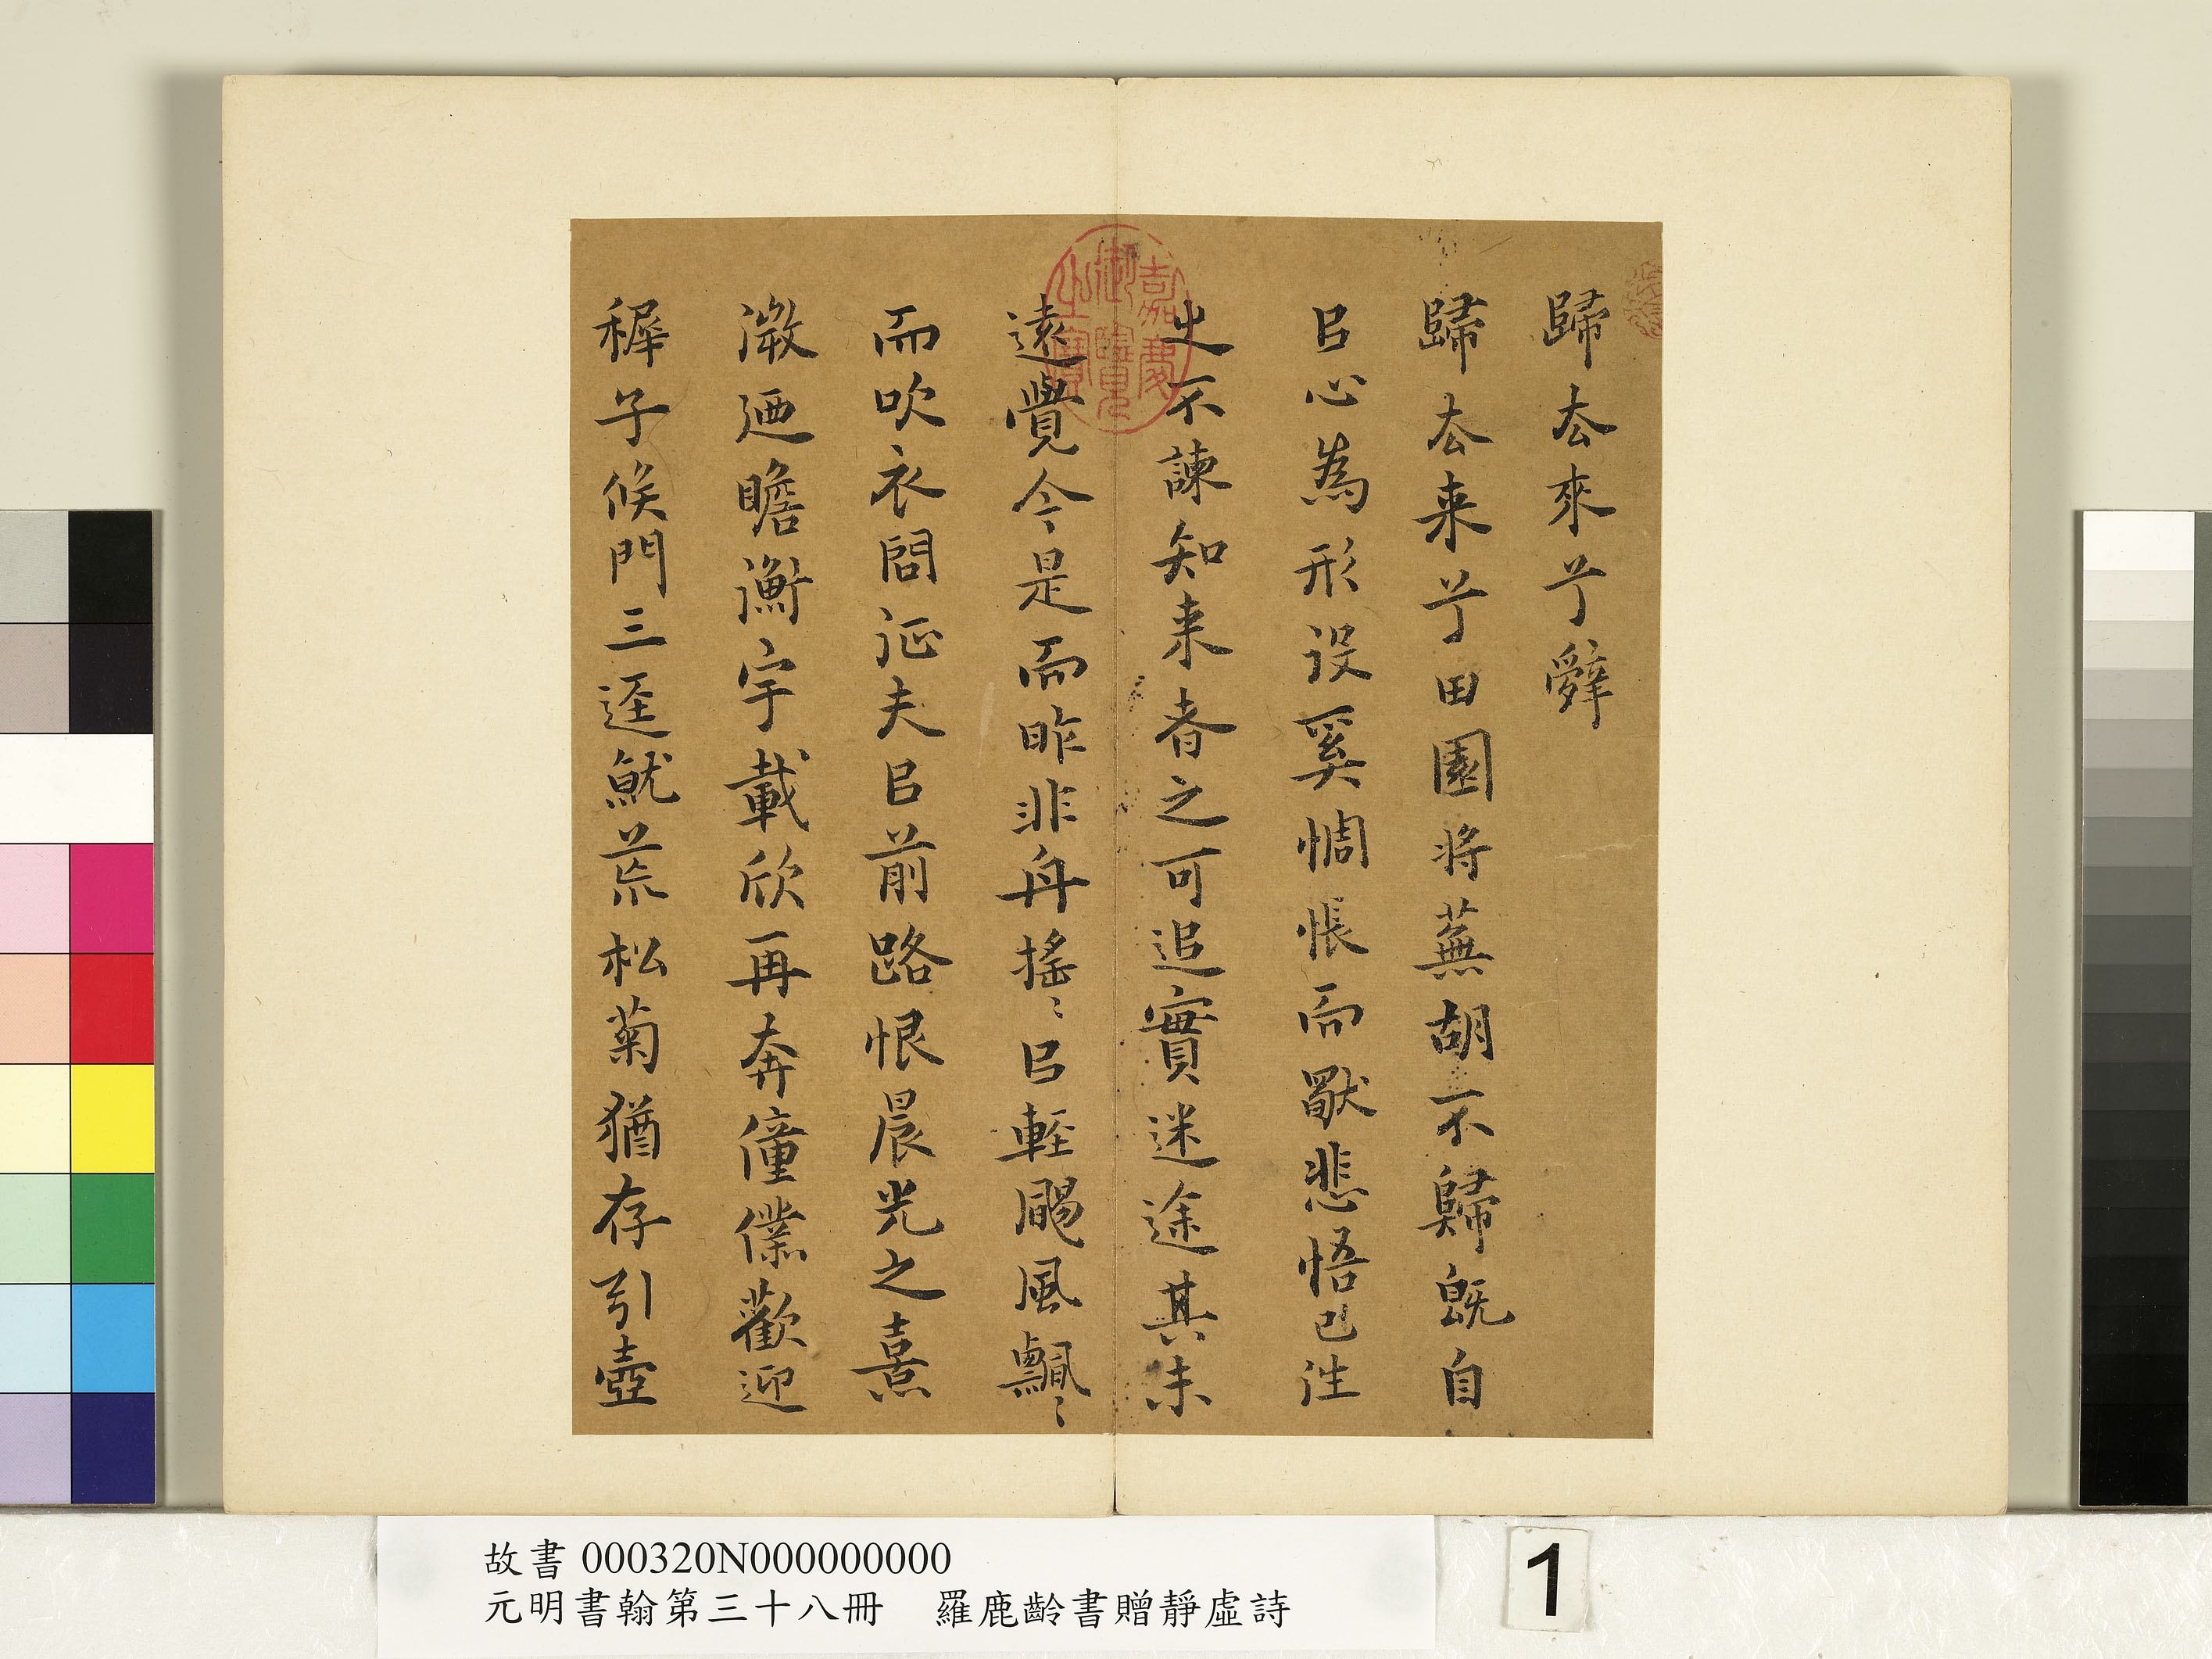 歸去來兮辭
歸去来兮田園将蕪胡不歸既自
㠯心為形役奚惆悵而獨悲悟已往
之不諫知来者之可追實迷途其未
遠覺今是而昨非舟搖〻㠯輕颺風飄〻
而吹衣問征夫㠯前路恨晨光之熹
微迺瞻衡宇載欣再奔僮僕歡迎
稺子候門三逕就荒松菊猶存引壺
嘉慶御覽之寶
故書 000320N000000000
元明書翰第三十八冊 羅鹿齡書贈靜虛詩
1